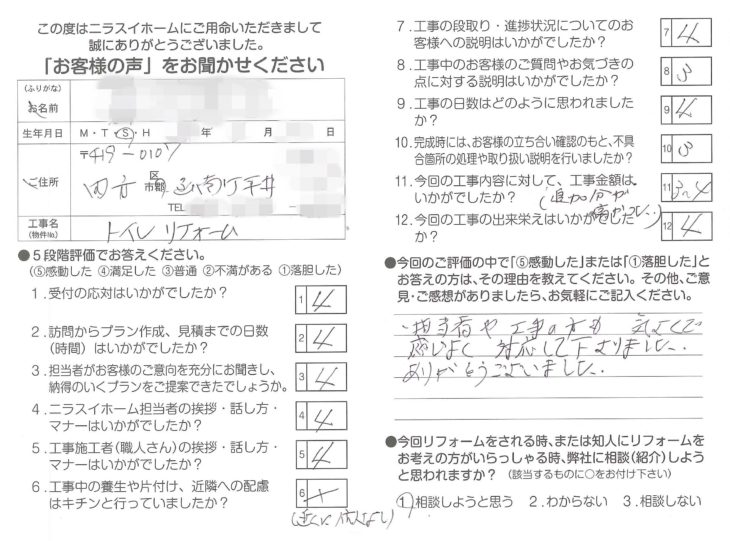 この度はニラスイホームにご用命いただきまして
誠にありがとうございました。
「お客様の声」をお聞かせください
(ふりがな)
お名前
生年月日 M・T・S・H 年 月 日
ご住所 〒419-0107
区
市郡
TEL
工事名
(物件No.)
トイレリフォーム
●5段階評価でお答えください。
(⑤感動した ④満足した ③普通 ②不満がある ①落胆した)
1.受付の応対はいかがでしたか?
1 4
2.訪問からプラン作成、見積までの日数
(時間)はいかがでしたか?
2 4
3.担当者がお客様のご意向を充分にお聞きし、
納得のいくプランをご提案できたでしょうか。
3 4
4.ニラスイホーム担当者の挨拶・話し方・
マナーはいかがでしたか?
4 4
5.工事施工者(職人さん)の挨拶・話し方・
マナーはいかがでしたか?
5 4
6.工事中の養生や片付け、近隣への配慮
はキチンと行っていましたか?
6
7.工事の段取り・進捗状況についてのお
客様への説明はいかがでしたか?
7 4
8.工事中のお客様のご質問やお気づきの
点に対する説明はいかがでしたか?
8 3
9.工事の日数はどのように思われました
か?
9 4
10.完成時には、お客様の立ち合い確認のもと、不具
合箇所の処理や取り扱い説明を行いましたか?
10 3
11.今回の工事内容に対して、工事金額は
いかがでしたか?
11 3~4
(追加分が
12.今回の工事の出来栄えはいかがでした
か?
12 4
●今回のご評価の中で「⑤感動した」または「①落胆した」と
お答えの方は、その理由を教えてください。その他、ご意
見・ご感想がありましたら、お気軽にご記入ください。
・担当者や工事の方も 気よくで
感じよく 対応して下さりました.
ありがとうございました.
●今回リフォームをされる時、または知人にリフォームを
お考えの方がいらっしゃる時、弊社に相談(紹介)しよう
と思われますか? (該当するものに○をお付け下さい)
1.相談しようと思う 2.わからない 3.相談しない